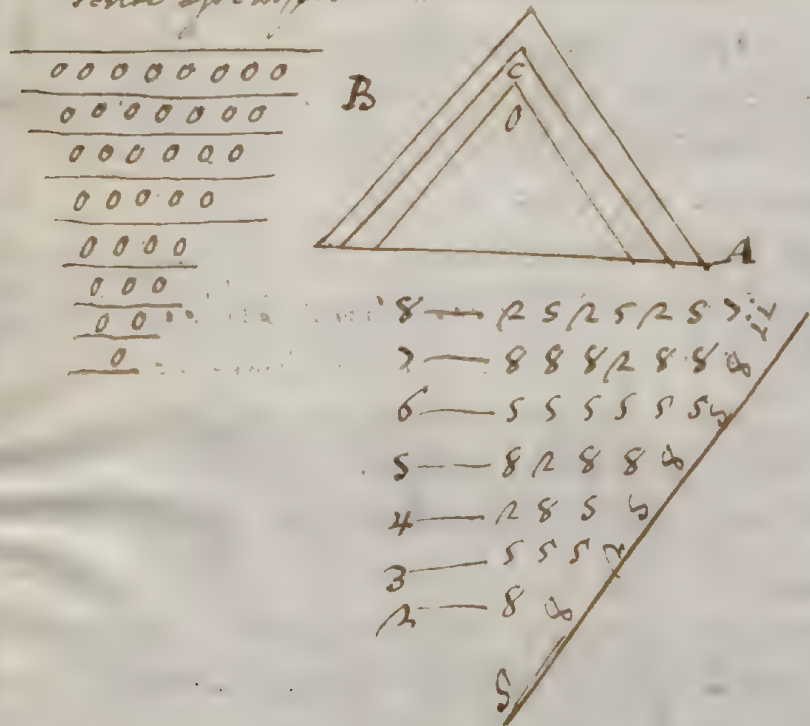 0 0 0 0 0 0 0 0
0 0 0 0 0 0 0
0 0 0 0 0 0
0 0 0 0 0
0 0 0 0
0 0 0
0 0
0
B
C
0
A
8 — 2 5 2 5 2 5
7 — 8 8 8 2 8 8 8
6 — 5 5 5 5 5 5
5 — 8 2 8 8 8
4 — 2 8 5 5
3 — 5 5 5 2
2 — 8 8
S